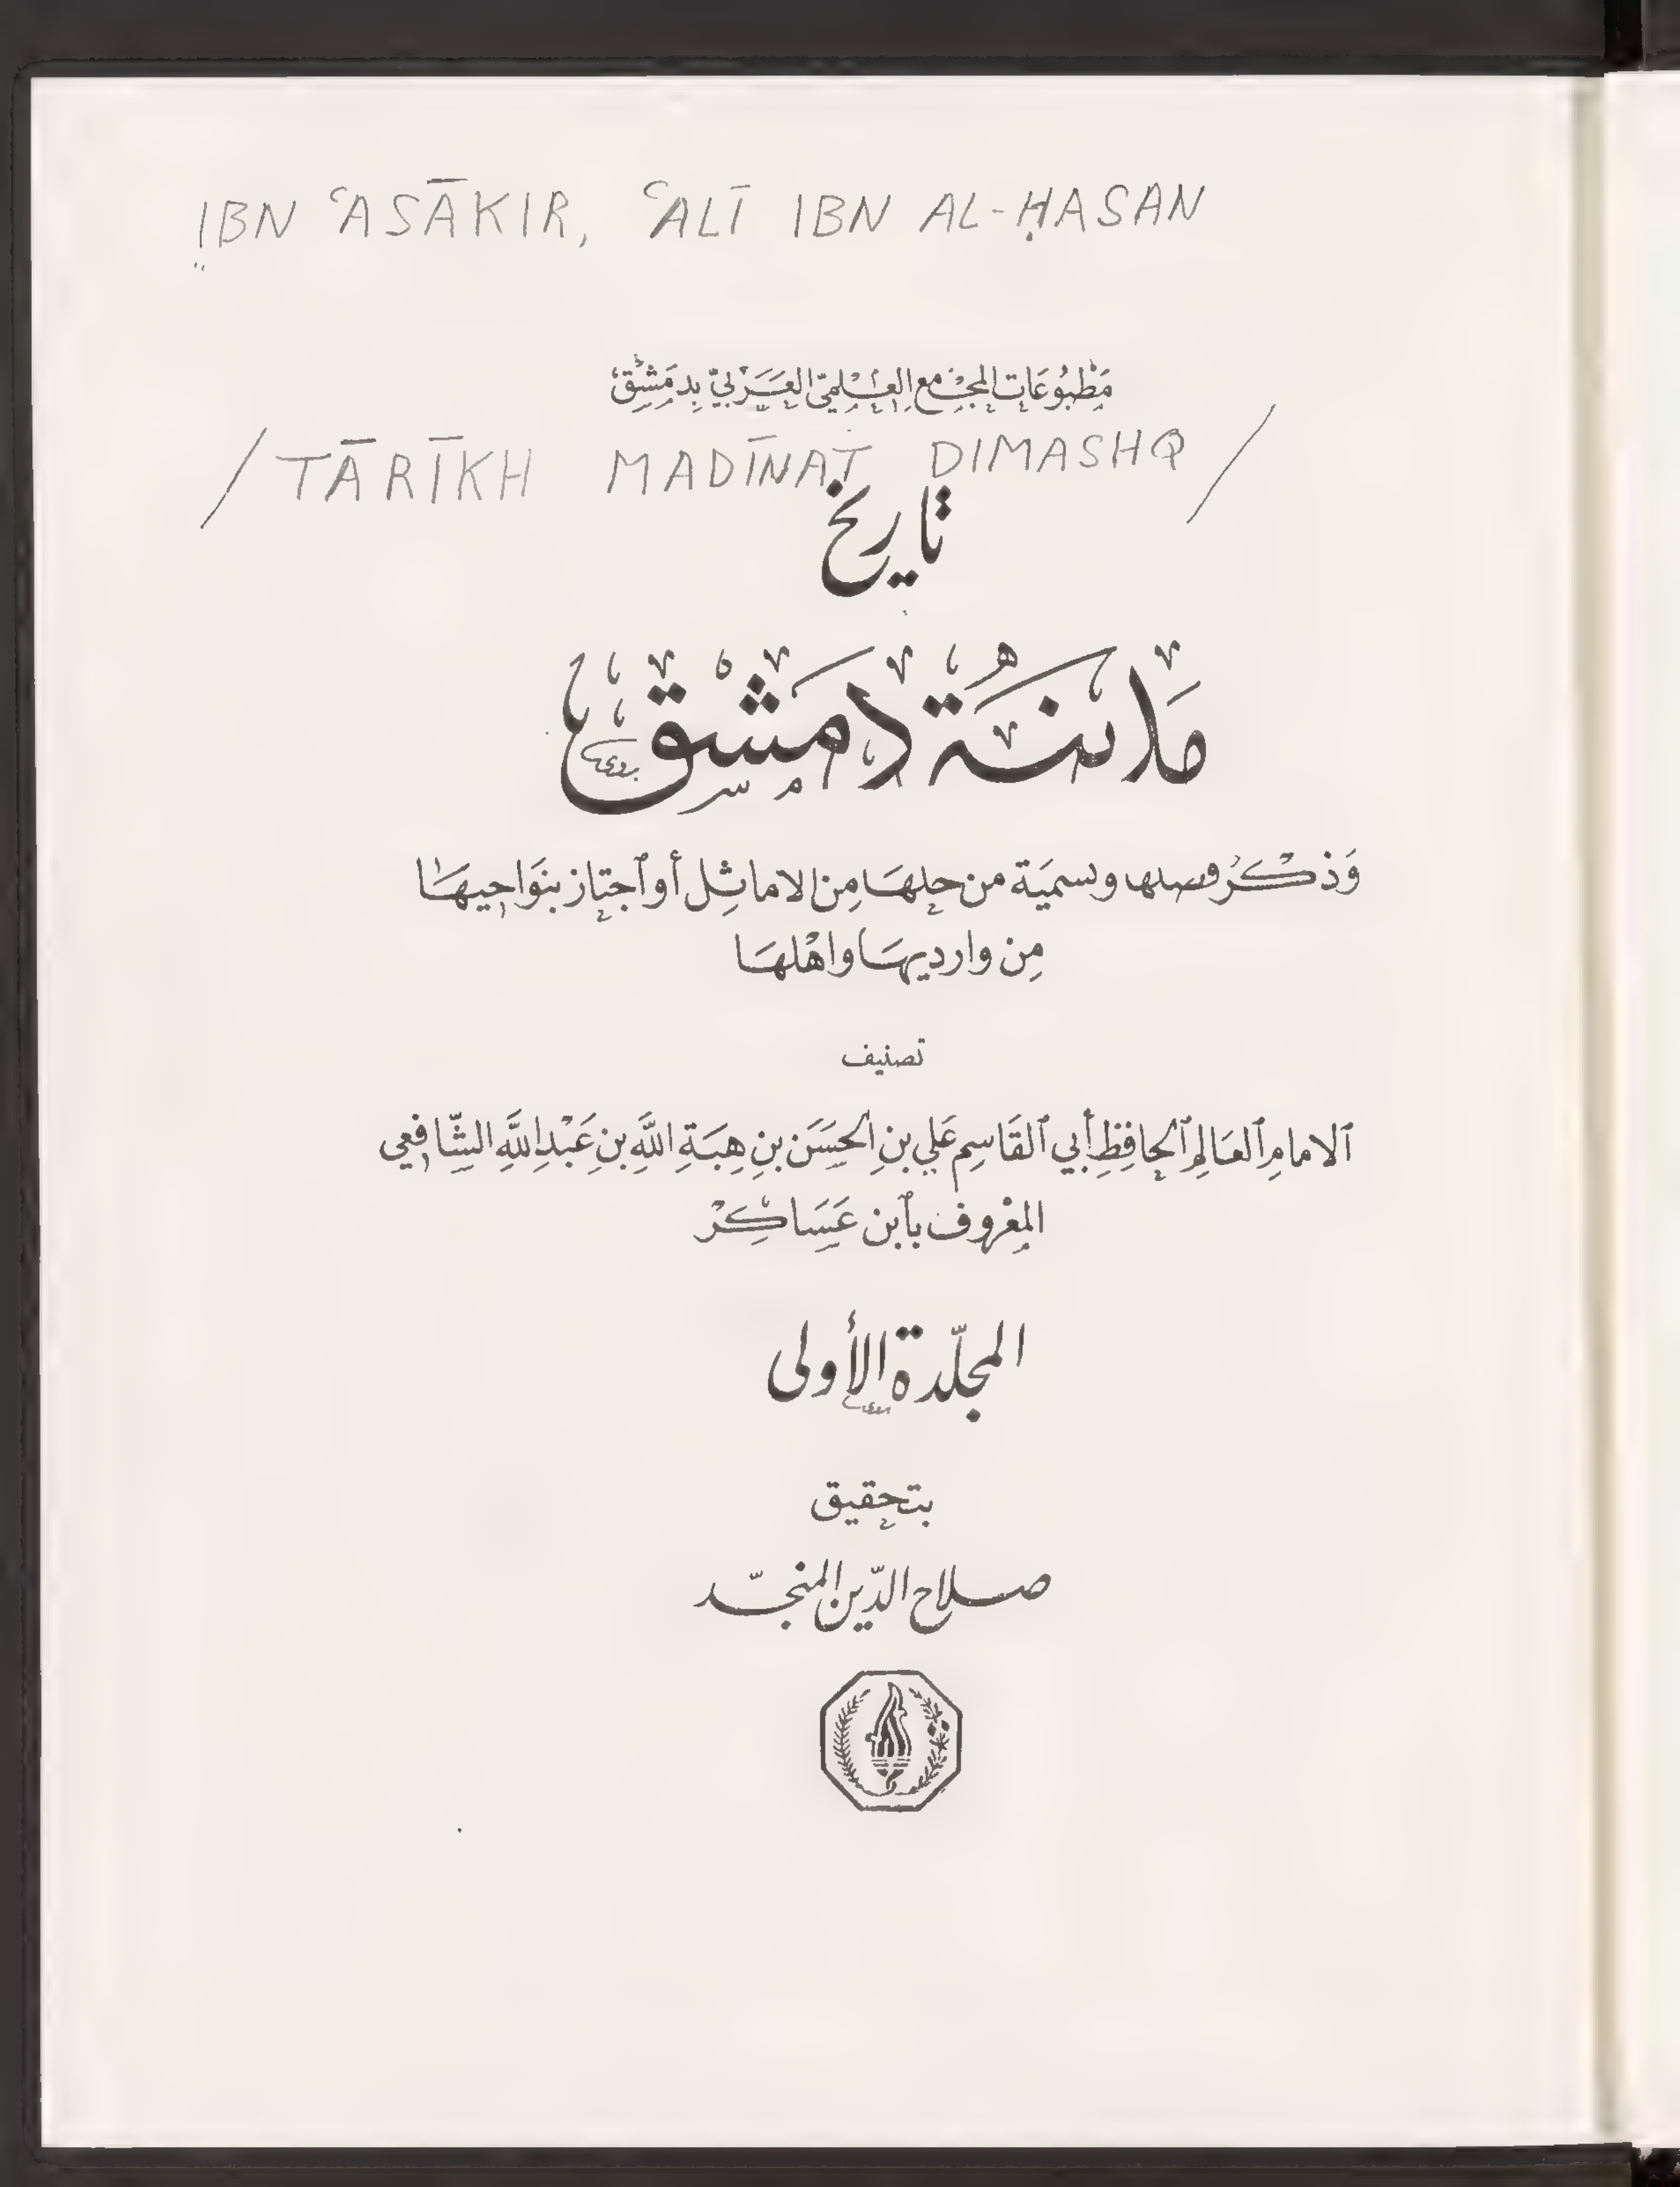 IBN ʿASĀKIR, ʿALĪ IBN AL-ḤASAN
مَطبُوعَات المجْمع العِلميّ العَرَبيّ بِدِمَشِق
/ TĀRĪKH MADĪNAT DIMASHQ /
تاريخ
مَدينَة دمَشق
وَذكْرُ فضلها وتسميَة من حلهَا مِن الاماثِل أو ٱجتاز بنَواحيهَا
مِن وارديهَا واهْلهَا
تصنيف
ٱلامامِ ٱلعَالِمِ ٱلحافِظِ أبي ٱلقَاسِم عَلي بنِ الحَسَن بنِ هِبَةِ اللَّهِ بنِ عَبْدِ اللَّهِ الشّافِعي
المعْروف بٱبن عَسَاكِرْ
المجلّدة الأولى
بتحقيق
صلاح الدّين المنجّد